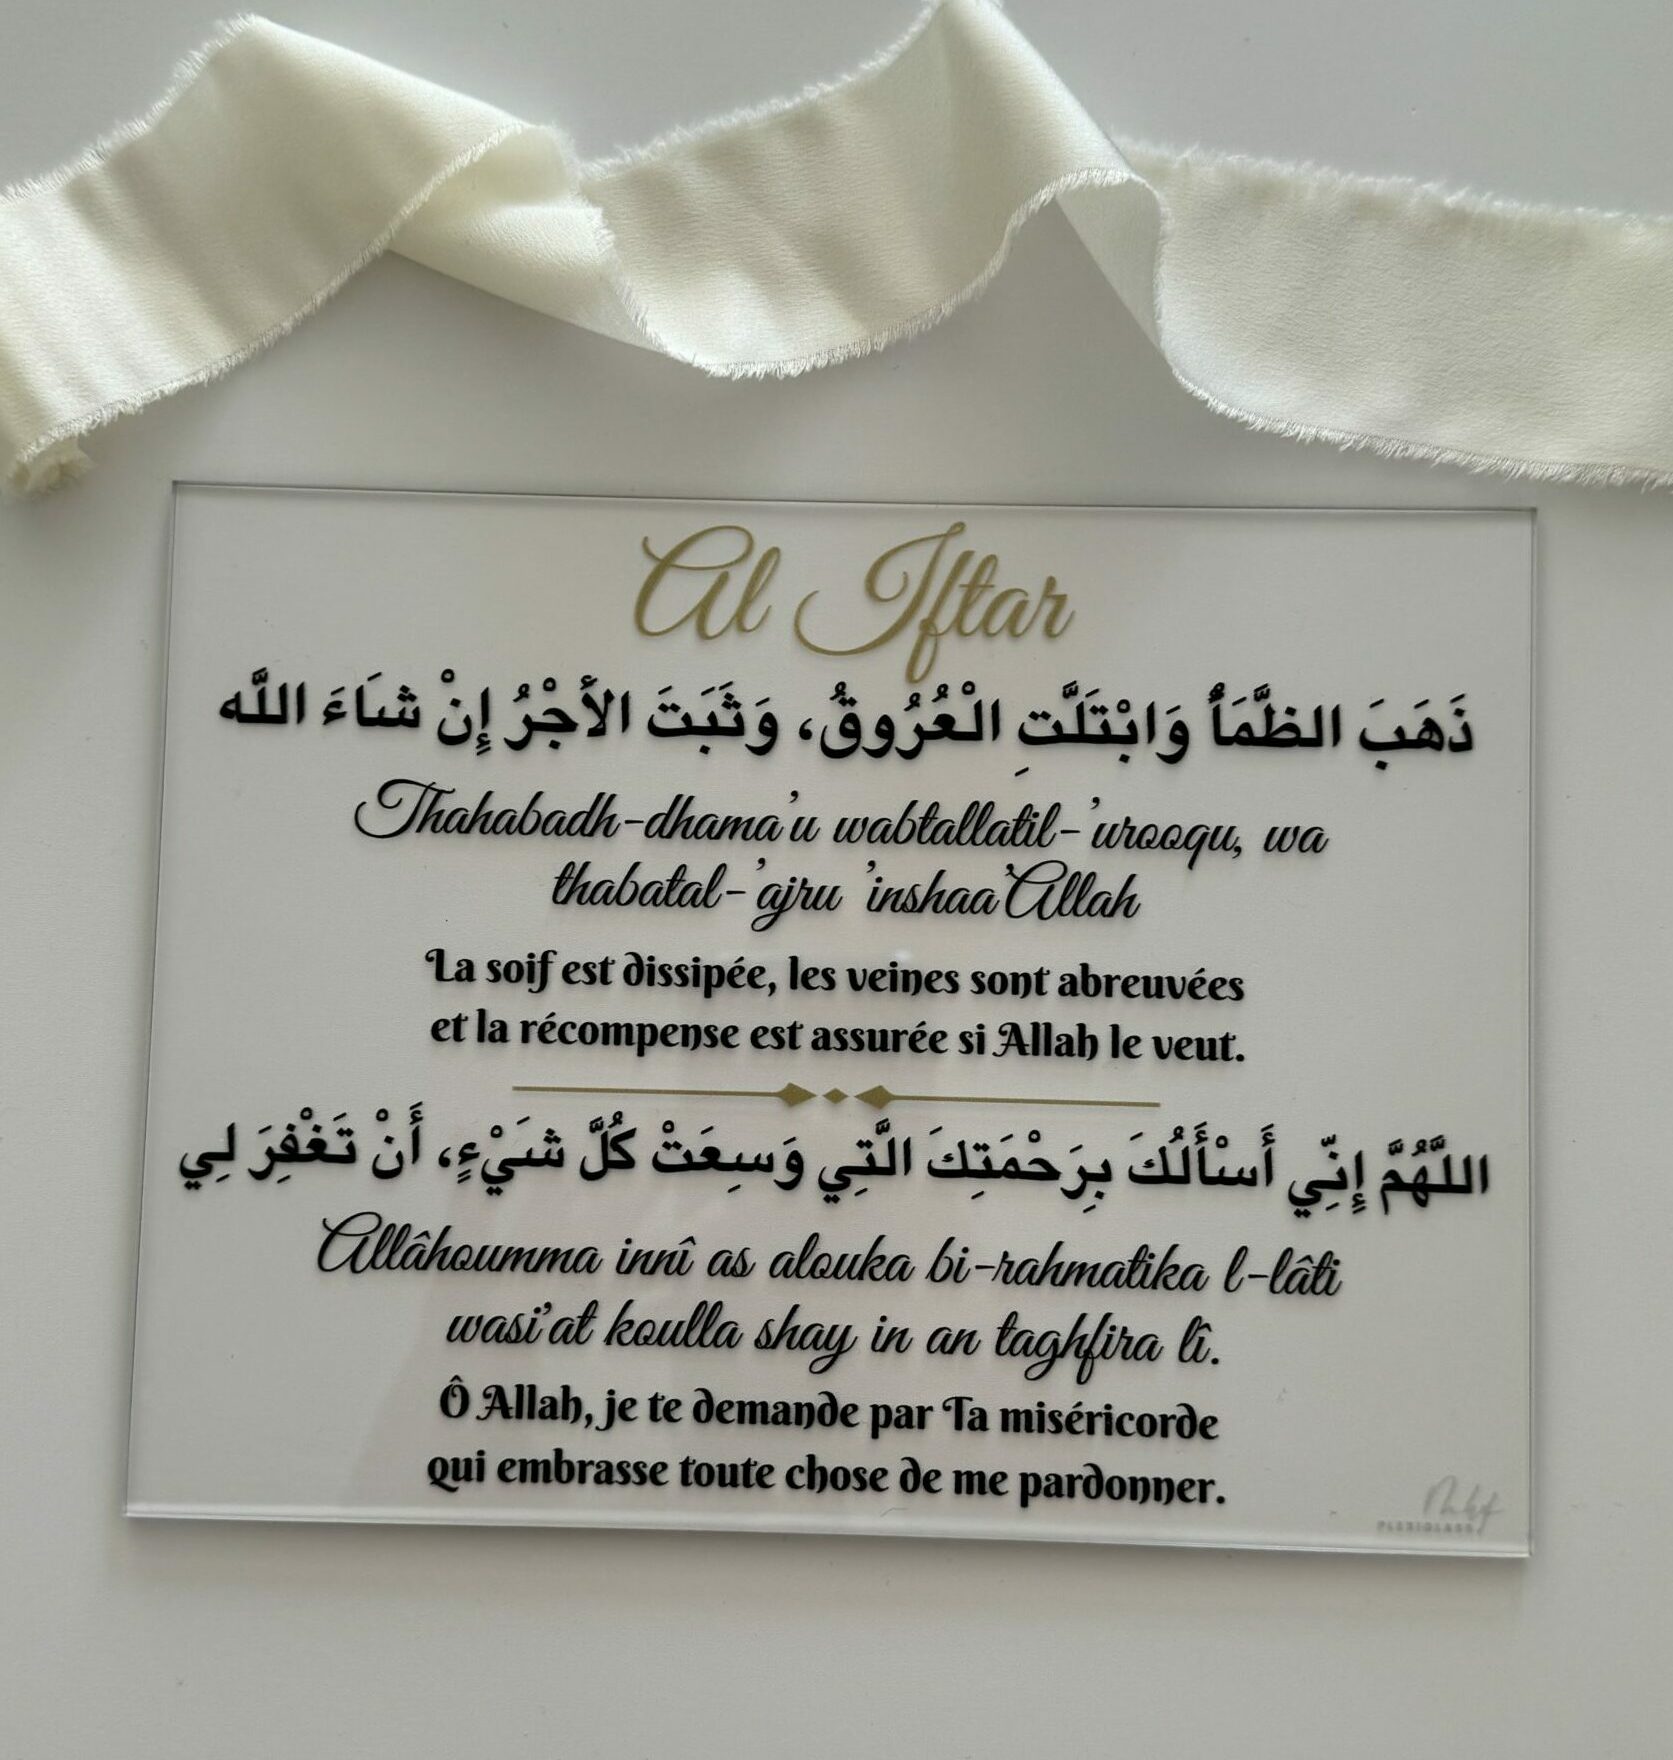 Al Iftar
ذَهَبَ الظَّمَأُ وَابْتَلَّتِ الْعُرُوقُ، وَثَبَتَ الأَجْرُ إِنْ شَاءَ اللَّه
Thahabadh-dhama'u wabtallatil-'urooqu, wa
thabatal-'ajru 'inshaa'Allah
La soif est dissipée, les veines sont abreuvées
et la récompense est assurée si Allah le veut.
اللَّهُمَّ إِنِّي أَسْأَلُكَ بِرَحْمَتِكَ الَّتِي وَسِعَتْ كُلَّ شَيْءٍ، أَنْ تَغْفِرَ لِي
Allâhoumma innî as alouka bi-rahmatika l-lâti
wasi'at koulla shay in an taghfira lî.
Ô Allah, je te demande par Ta miséricorde
qui embrasse toute chose de me pardonner.
PLEXIGLASS